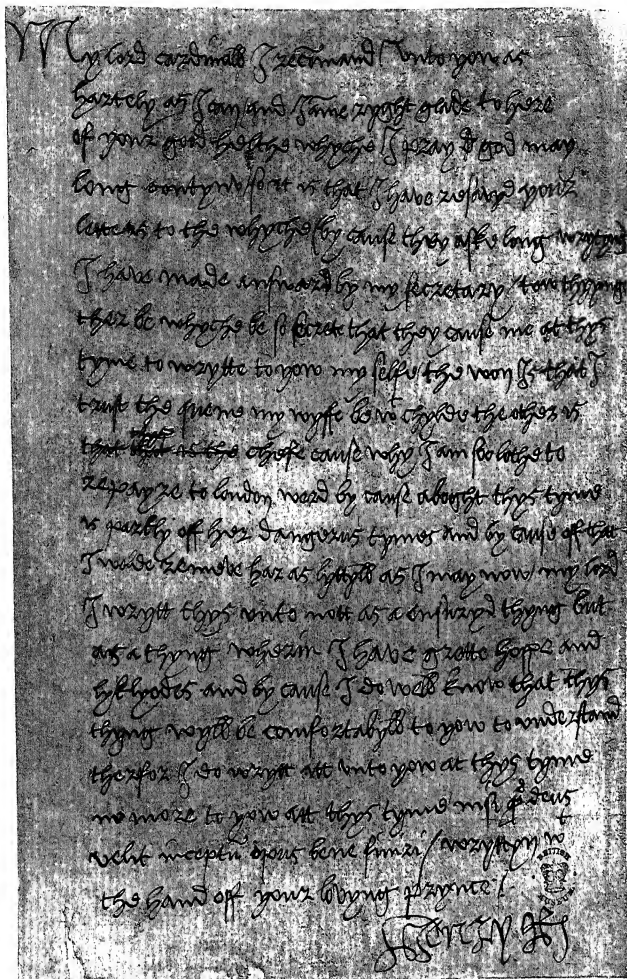 My lord cardinall I recommand unto yow as
hartely as I can and I ame ryght glade to here
of your good helthe whyche I pray god may
long contynw so it is that I have resavyd your
letters to the whyche / by cause they aske long wrytyng
I have made answard by my secretary / tow thyngs
ther be whyche be so secrete that they cause me at thys
tyme to wrytte to yow my selfe the won is that I
trust the quene my wyffe be wt chylde the other is
chefe cause why I am soo lothe to
repayre to london ward by cause aboght thys tyme
is partly off her dangerus tymes and by cause off that
I wolde remeve har as lyttyll as I may now / my lord
I wrytt thys unto nott as a ensuryd thyng but
as a thyng wherin I have grette hoppe and
lyklyodes and by cause I do well know that thys
thyng wyll be comfortabyll to yow to understand
therfor I do wrytt att unto yow at thys tyme
no more to yow att thys tyme nisi qd deus
velit inceptu opus bene finiri / wryttyn wt
the hand off your lovyng prynce /
Henry R